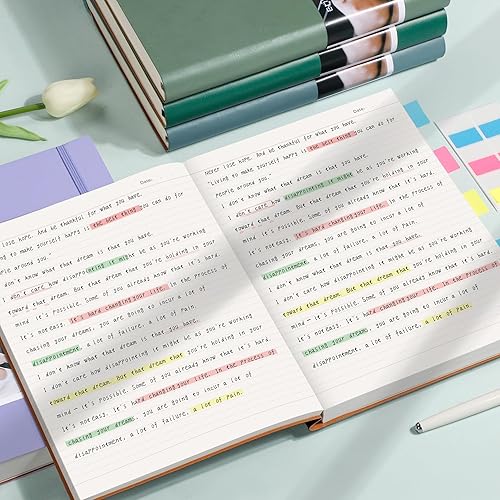 Date:
lose hope. And be thankful for what you have.
ng to make yourself happy is the best thing you can do for
eople around you."
don't know what that dream is that you have.
I don't care how disappointing it might be as you're working
toward that dream. But that dream that you're holding in your
mind - it's possible. Some of you already know that it's hard
It's not easy. It's hard changing your life. In the process of
chasing your dreams, you are going to incur a lot of
disappointement, a lot of failure, a lot of pain.
I don't know what that dream is that you have.
I don't care how disappointing it might be as you're working
toward that dream. But that dream that you're holding in your
mind - it's possible. Some of you already know that it's hard
It's not easy. It's hard changing your life. In the process of
chasing your dreams, you are going to incur a lot of
disappointement, a lot of failure, a lot of pain.
Date:
Never lose hope. And be thankful for what you have.
"Living to make yourself happy is the best thing you can do for
people around you."
I don't know what that dream is that you have.
I don't care how disappointing it might be as you're working
toward that dream. But that dream that you're holding in your
mind - it's possible. Some of you already know that it's hard
It's not easy. It's hard changing your life. In the process of
chasing your dreams, you are going to incur a lot of
disappointement, a lot of failure, a lot of pain.
I don't know what that dream is that you have.
I don't care how disappointing it might be as you're working
toward that dream. But that dream that you're holding in your
mind - it's possible. Some of you already know that it's hard
It's not easy. It's hard changing your life. In the process of
chasing your dreams, you are going to incur a lot of
disappointement, a lot of failure, a lot of pain.